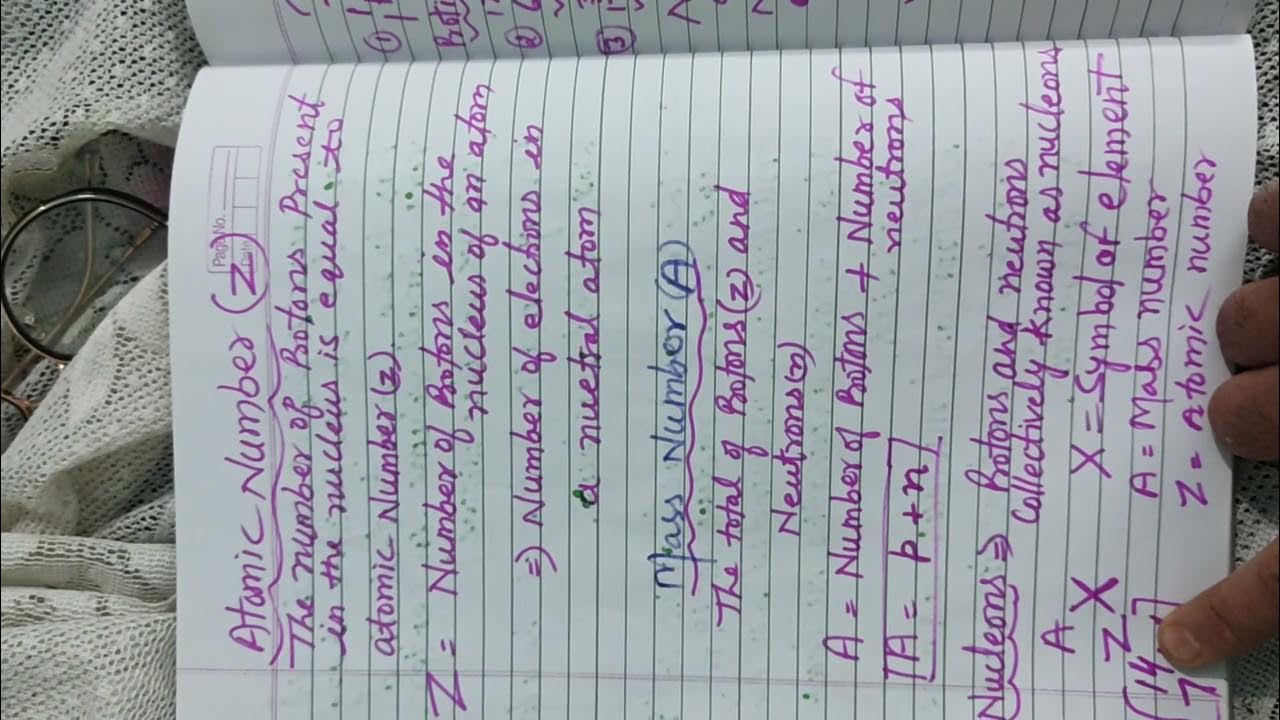 Page No.
Date
Atomic Number (Z)
The number of Protons Present
in the nucleus is equal to
atomic Number (z)
Z = Number of Protons in the
nucleus of an atom
⇒ Number of elections in
a nuetral atom
Mass Number (A)
The total of Protons (z) and
Neutrons (n)
A = Number of Protons + Number of
neutrons
A = p + n
Nucleons ⇒ Protons and neutrons
collectively known as nucleons
A
Z X
X = Symbol of element
A = Mass number
Z = Atomic number
14
7